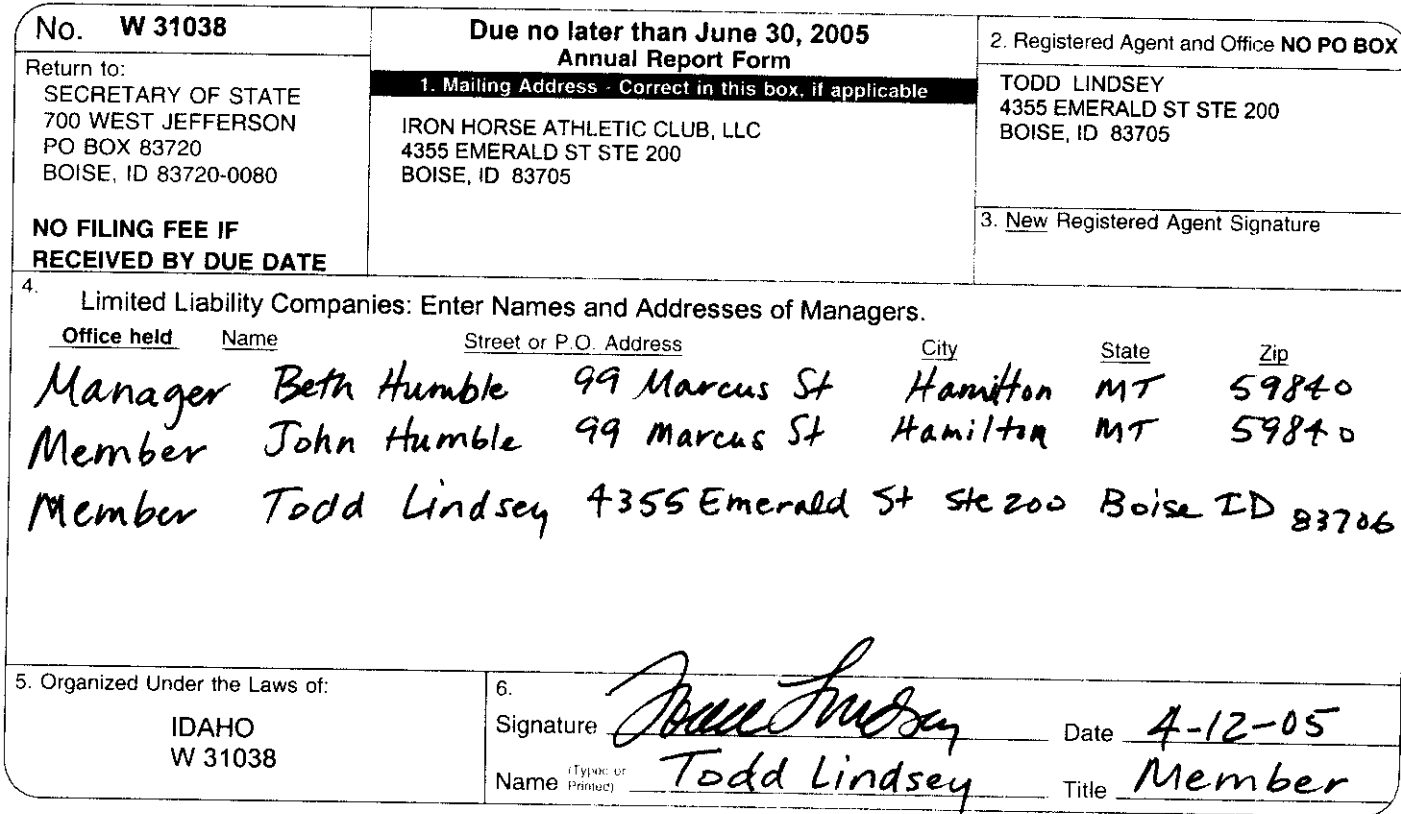 No. W 31038
Return to:
SECRETARY OF STATE
700 WEST JEFFERSON
PO BOX 83720
BOISE, ID 83720-0080
NO FILING FEE IF
RECEIVED BY DUE DATE
Due no later than June 30, 2005
Annual Report Form
1. Mailing Address - Correct in this box, if applicable
IRON HORSE ATHLETIC CLUB, LLC
4355 EMERALD ST STE 200
BOISE, ID 83705
2. Registered Agent and Office NO PO BOX
TODD LINDSEY
4355 EMERALD ST STE 200
BOISE, ID 83705
3. New Registered Agent Signature
4.
Limited Liability Companies: Enter Names and Addresses of Managers.
Office held Name Street or P.O. Address City State Zip
Manager Beth Humble 99 Marcus St Hamilton MT 59840
Member John Humble 99 Marcus St Hamilton MT 59840
Member Todd Lindsey 4355 Emerald St Ste 200 Boise ID 83706
5. Organized Under the Laws of:
IDAHO
W 31038
6.
Signature Todd Lindsey Date 4-12-05
Name (Typed or Printed) Todd Lindsey Title Member